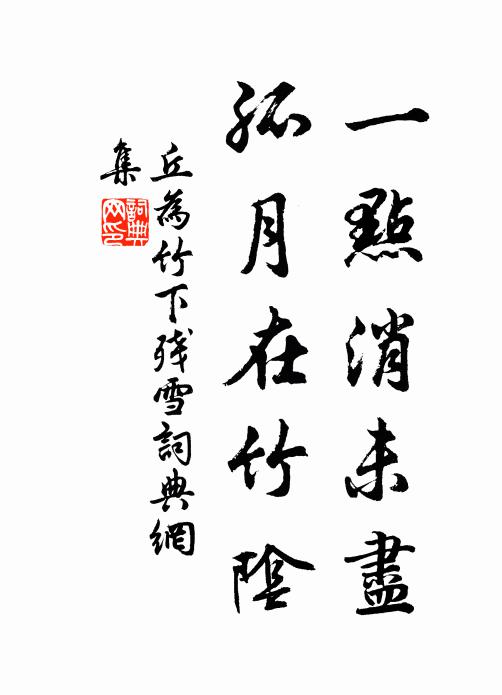 一點消未盡
孤月在竹陰
丘為竹下残雪詞典網
集
詞典
网印